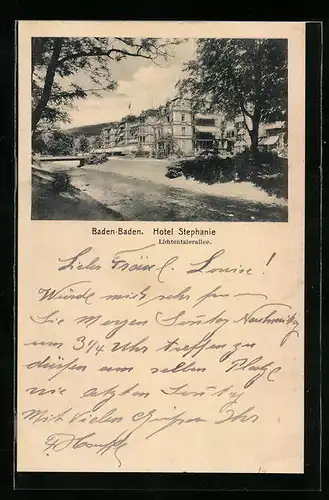 Baden-Baden. Hotel Stephanie
Lichtentalerallee.
Liebes Fräul. Louise!
Würde mich sehr freuen
Sie Morgen Sontag Nachmittag
um 3¼ Uhr treffen zu
dürfen am selben Platz
wie letzten Sontag
Mit vielen Grüßen Ihr